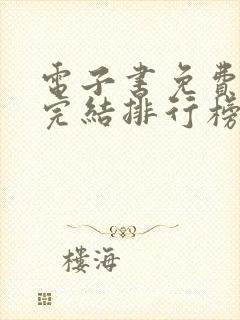 電子書免費
完結排行榜
樓海